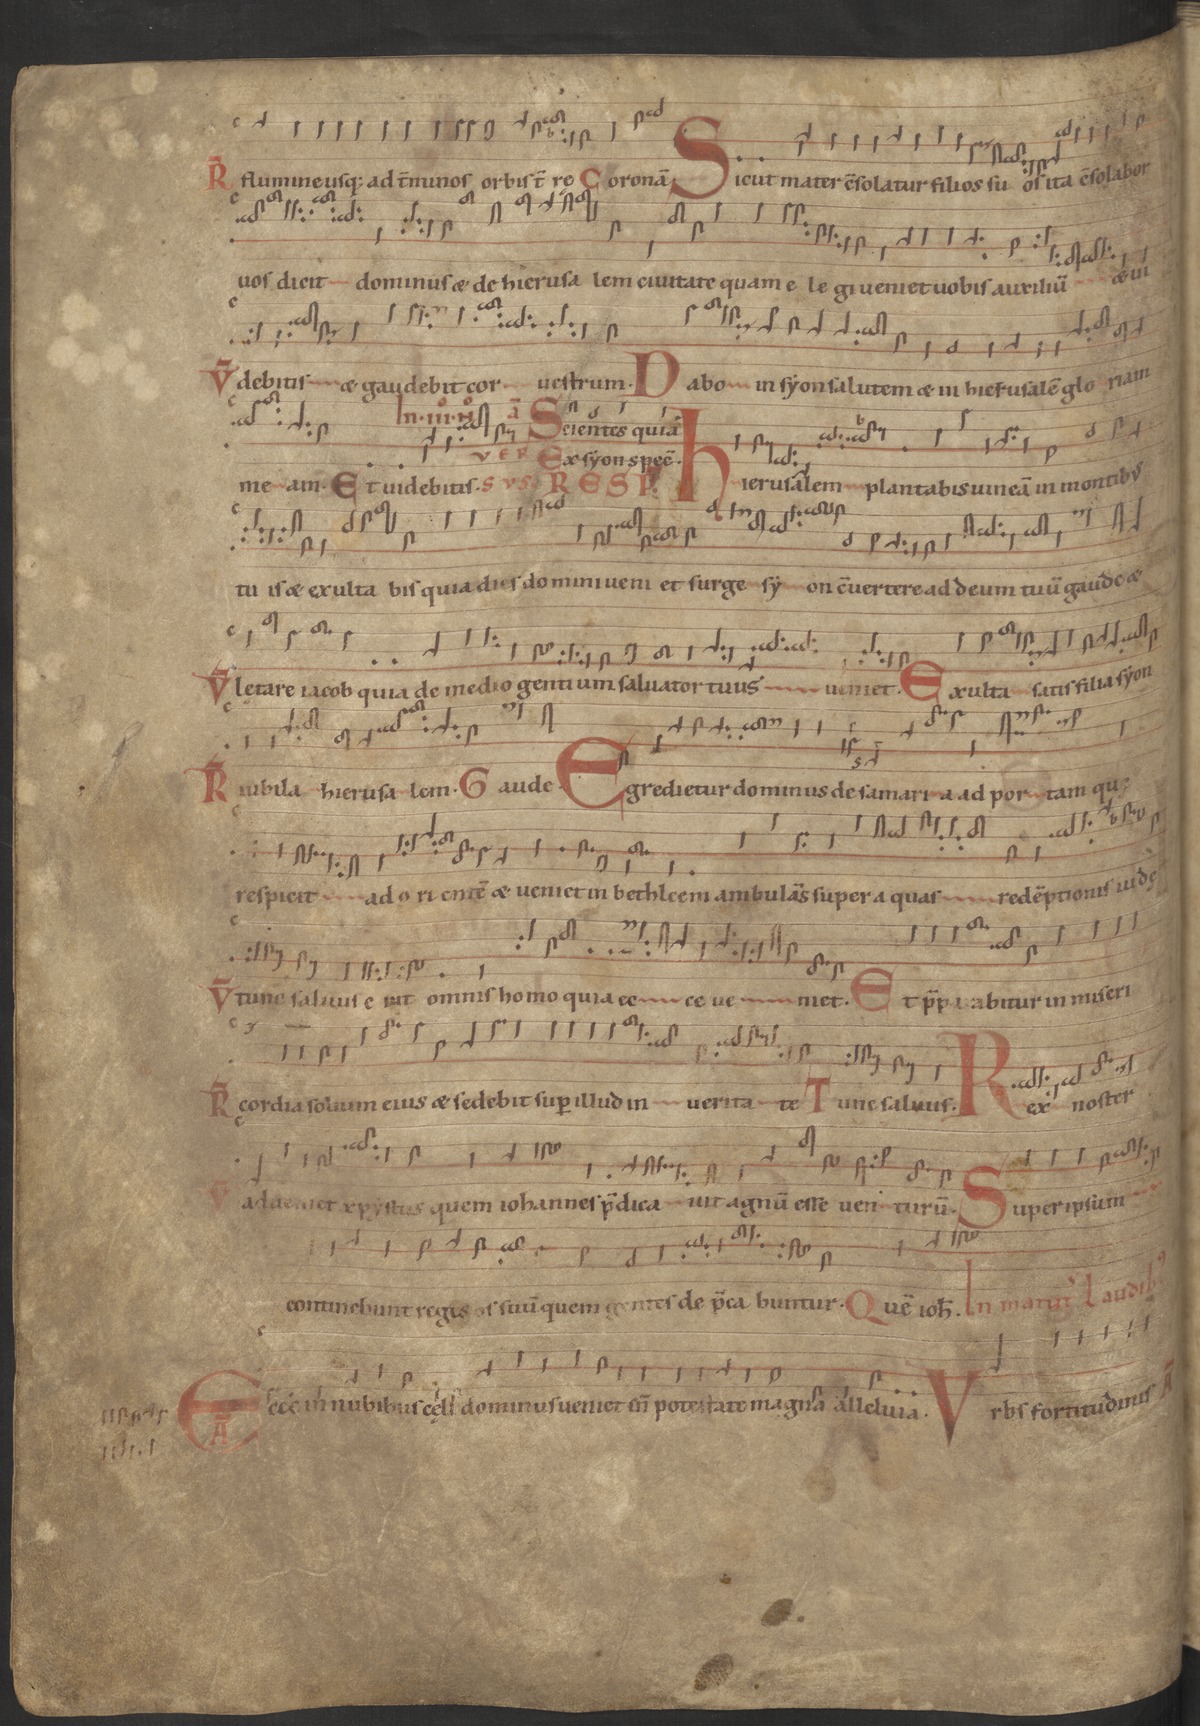 R̄ flumine usq; ad t̄minos orbis t̄ re Coronā Sicut mater c̄solatur filios su os ita c̄solabor
uos dicit dominus & de hierusa lem ciuitate quam e le gi ueniet uobis auxiliū & ui
V̄ debitis & gaudebit cor uestrum. Dabo in syon salutem & in hierusalē glo riam
In .iii. N̄ ā Scientes quia
VER Ex syon specē.
me am. Et uidebitis. SUS RESP. hierusalem plantabis uineā in montibus
tu is & exulta bis quia dies domini ueni et surge sy on c̄uertere ad deum tuū gaude &
V̄ letare iacob quia de medio gentium saluator tuus ueniet. Exulta satis filia syon
R̄ iubila hierusa lem. Gaude. Egredietur dominus de samari a ad por tam quę
respicit ad o ri entē & ueniet in bethleem ambulās super a quas redēptionis iudę
V̄ tunc saluus e rit omnis homo quia ec ce ue niet. Et p̄parabitur in miseri
R̄ cordia solium eius & sedebit sup illud in uerita te Tunc saluus. Rex noster
V̄ adueniet xpystus quem iohannes p̄dica uit agnū esse uen turū. Super ipsum
continebunt reges os suū quem gentes de p̄ca buntur. Quē ioh̄. In matut̄ Laudib9
Ecce in nubibus cęli dominus ueniet cū potestate magna alleluia. Vrbs fortitudinis Ā